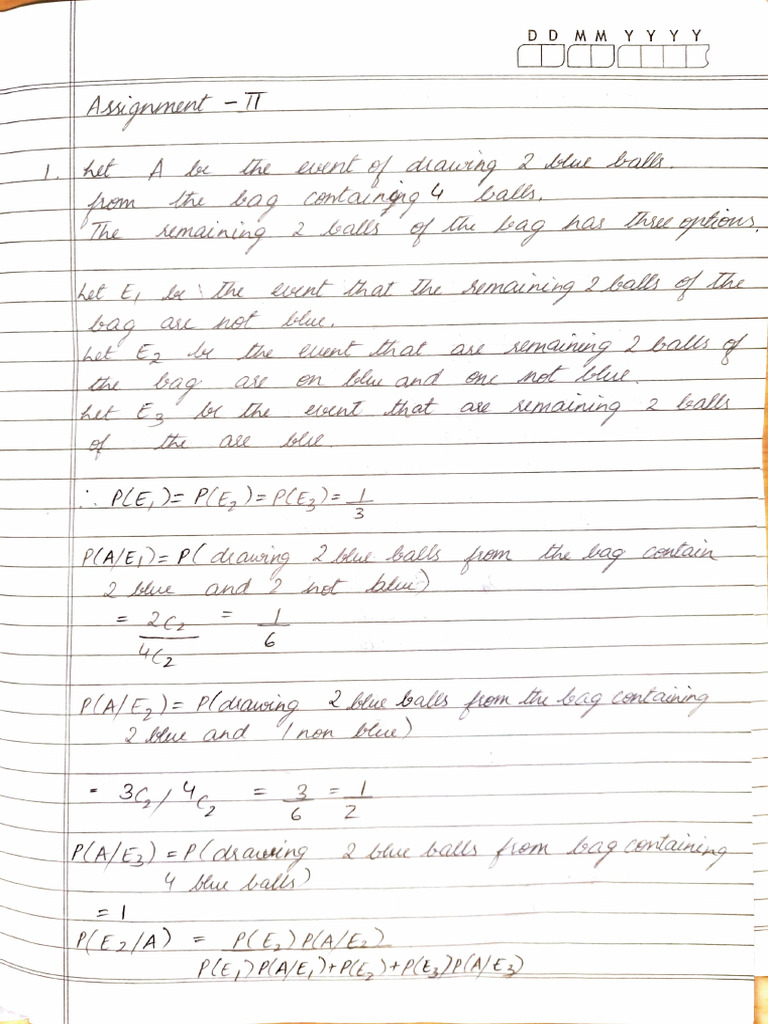 D D M M Y Y Y Y
Assignment - II
1. Let A be the event of drawing 2 blue balls.
from the bag containing 4 balls.
The remaining 2 balls of the bag has three options.
Let E₁ be the event that the remaining 2 balls of the
bag are not blue.
Let E₂ be the event that are remaining 2 balls of
the bag are on blue and one not blue.
Let E₃ be the event that are remaining 2 balls
of the are blue
∴ P(E₁) = P(E₂) = P(E₃) = 1/3
P(A/E₁) = P( drawing 2 blue balls from the bag contain
2 blue and 2 not blue)
= 2C₂/4C₂ = 1/6
P(A/E₂) = P(drawing 2 blue balls from the bag containing
2 blue and 1 non blue)
= 3C₂ / 4C₂ = 3/6 = 1/2
P(A/E₃) = P(drawing 2 blue balls from bag containing
4 blue balls)
= 1
P(E₂/A) = P(E₂) P(A/E₂)
P(E₁) P(A/E₁) + P(E₂) + P(E₃) P(A/E₃)